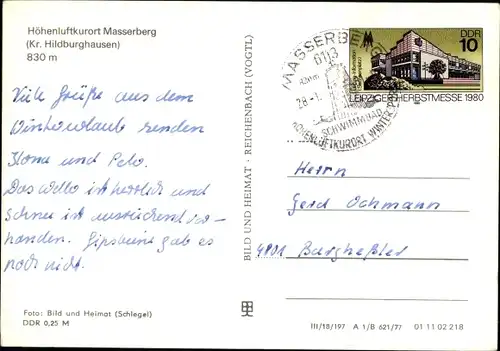 Höhenluftkurort Masserberg
(Kr. Hildburghausen)
830 m
Viele Grüße aus dem
Winterurlaub senden
Ilona und Peto.
Das Wetter ist herrlich und
Schnee ist ausreichend vor-
handen. Gipsbeine gab es
noch nicht.
Foto: Bild und Heimat (Schlegel)
DDR 0,25 M
BILD UND HEIMAT · REICHENBACH (VOGTL)
MASSERBERG
6113
28.-1.
SCHWIMMBAD
HÖHENLUFTKURORT WINTER
DDR
10
LEIPZIGER HERBSTMESSE 1980
Herrn
Gerd Ochmann
4801 Burgheßler
III/18/197 A 1/B 621/77 01 11 02 218